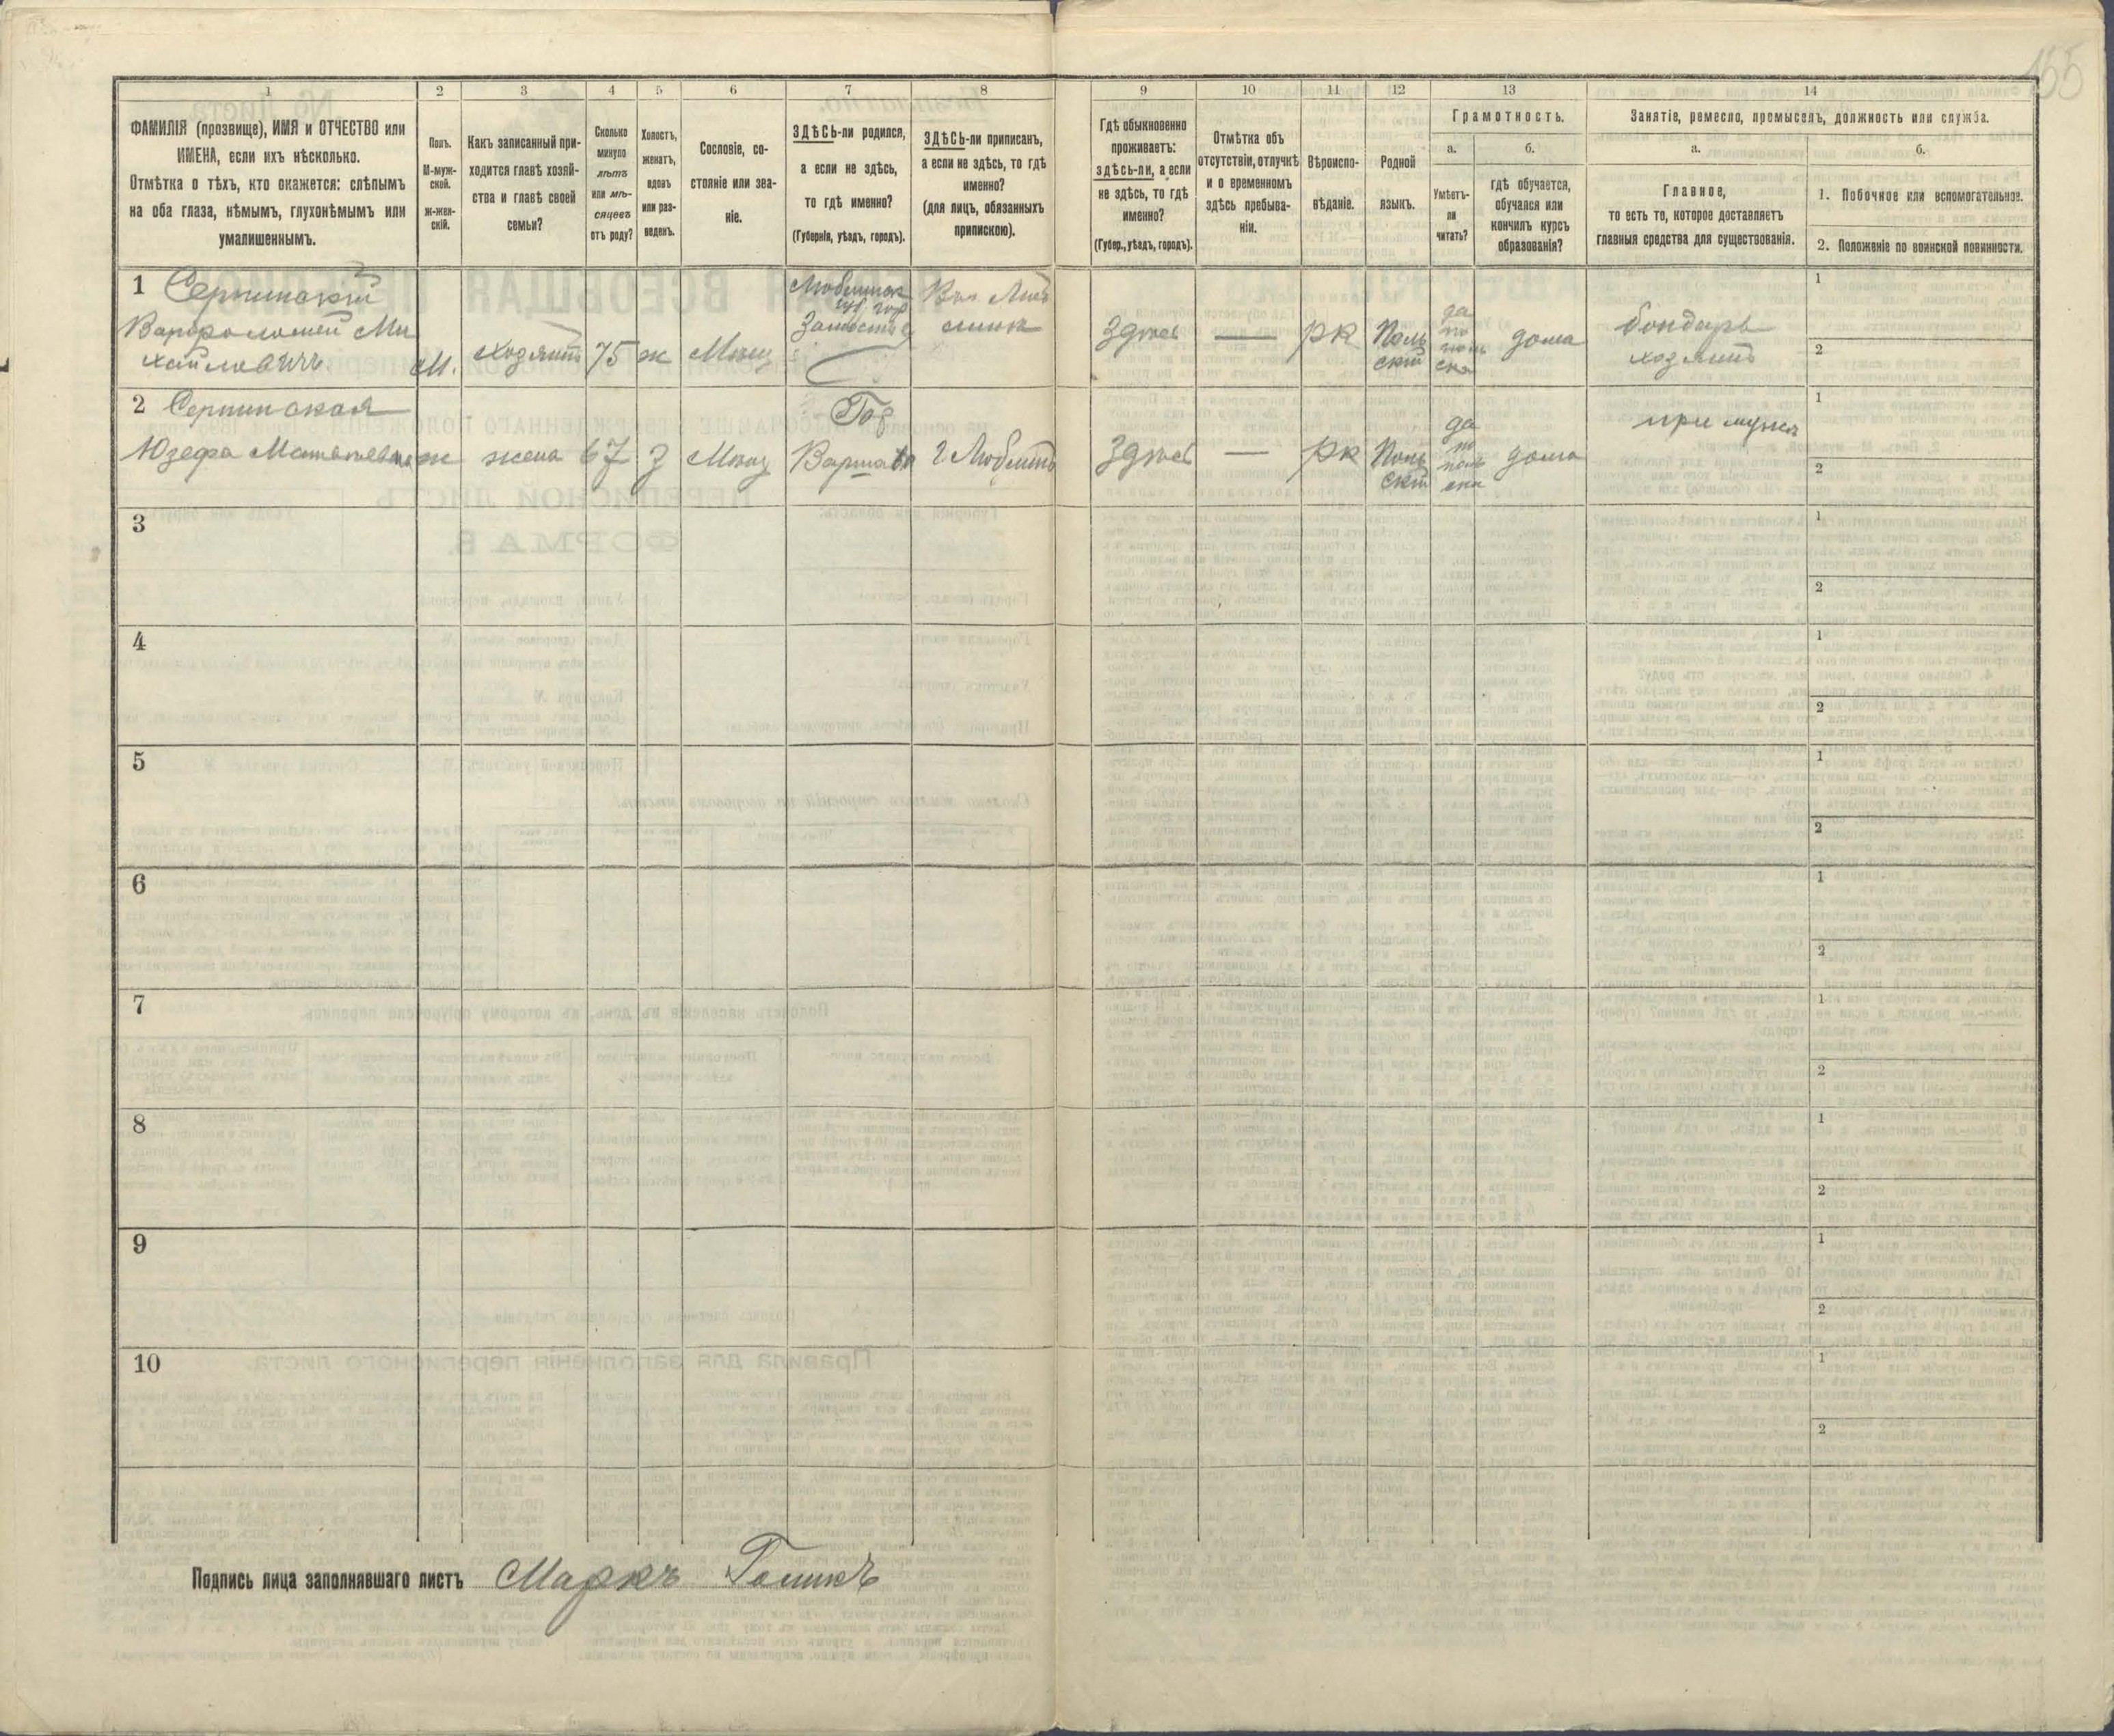 155
1
2
3
4
5
6
7
8
9
10
11
12
13
14
ФАМИЛІЯ (прозвище), ИМЯ и ОТЧЕСТВО или
ИМЕНА, если ихъ нѣсколько.
Отмѣтка о тѣхъ, кто окажется: слѣпымъ
на оба глаза, нѣмымъ, глухонѣмымъ или
умалишеннымъ.
Полъ.
М-муж-
ской.
Ж-жен-
скій.
Какъ записанный при-
ходится главѣ хозяй-
ства и главѣ своей
семьи?
Сколько
минуло
лѣтъ
или мѣ-
сяцевъ
отъ роду?
Холостъ,
женатъ,
вдовъ
или раз-
веденъ.
Сословіе, со-
стояніе или зва-
ніе.
ЗДѢСЬ-ли родился,
а если не здѣсь,
то гдѣ именно?
(Губернія, уѣздъ, городъ).
ЗДѢСЬ-ли приписанъ,
а если не здѣсь, то гдѣ
именно?
(для лицъ, обязанныхъ
припискою).
Гдѣ обыкновенно
проживаетъ:
здѣсь-ли, а если
не здѣсь, то гдѣ
именно?
(Губер., уѣздъ, городъ).
Отмѣтка объ
отсутствіи, отлучкѣ
и о временномъ
здѣсь пребыва-
ніи.
Вѣроиспо-
вѣданіе.
Родной
языкъ.
Грамотность.
а.
Умѣетъ-
ли
читать?
б.
гдѣ обучается,
обучался или
кончилъ курсъ
образованія?
Занятіе, ремесло, промыселъ, должность или служба.
а.
Главное,
то есть то, которое доставляетъ
главныя средства для существованія.
б.
1. Побочное или вспомогательное.
2. Положеніе по воинской повинности.
1
Варфоломей Ми
хайловичъ
м.
хозяинъ
75
ж
Мѣщ
Люблинск
губ гор
Замостье
Здѣсь
—
рк
Поль
скій
да
по
поль
ски
дома
бондарь
хозяинъ
1
2
2
Юзефа
ж
жена
67
з
Мѣщ
Гор
Варшава
г Люблинъ
Здѣсь
—
рк
Поль
скій
да
по
поль
ски
дома
при мужѣ
1
2
3
1
2
4
1
2
5
1
2
6
1
2
7
1
2
8
1
2
9
1
2
10
1
2
Подпись лица заполнявшаго листъ Маркъ